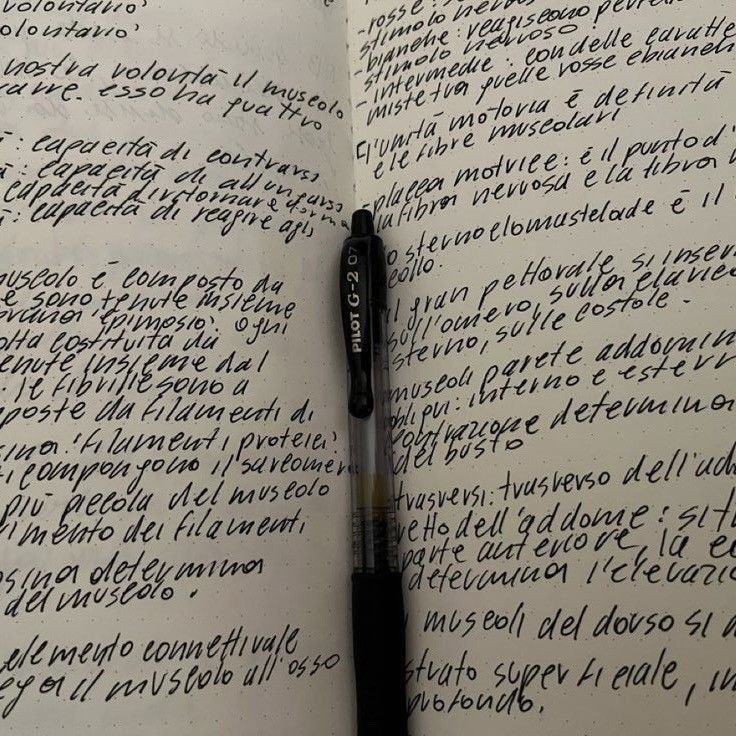 volontario'
olontario'
nostra volontà il muscolo
esso ha quattro
: capacità di contrarsi
: capacità di allungarsi
capacità di ritornare
: capacità di reagire agli
muscolo è composto da
e sono tenute insieme
epimisio. ogni
olta costituita da
enute insieme dal
. le fibrille sono a
poste da filamenti di
sina: filamenti proteici
compongono il sarcomero
più piccola del muscolo
rimento dei filamenti
osina determina
del muscolo.
elemento connettivale
ega il muscolo all'osso
PILOT G-2 07
- rosse:
stimolo nervoso
- bianche: reagiscono per
stimolo nervoso
- intermedie: con delle caratte
miste tra quelle rosse e bianche
L'unità motoria è definita
e le fibre muscolari
placca motrice: è il punto d'
la fibra nervosa e la fibra
o sternocleomastelade è il
collo.
il gran pettorale si inser
sull'omero, sulla clavico
sterno, sulle costole.
muscoli parete addomin
obliqui: interno e estern
contrazione determina
del busto
trasversi: trasverso dell'add
retto dell'addome: sit
parte anteriore, la co
determina l'elevazio
i muscoli del dorso si d
strato superficiale, in
profondo.